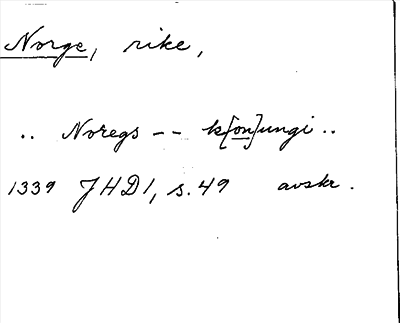 Norge, rike,
.. Noregs -- k[on]ungi ..
1339 JHD1, s. 49 avskr.